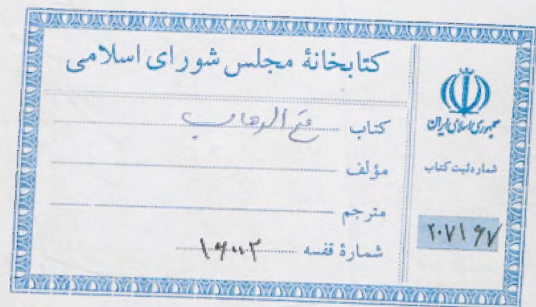 کتابخانهٔ مجلس شورای اسلامی
کتاب فتح الوهاب
مؤلف
مترجم
شمارهٔ قفسه ۱۶۰۰۲
جمهوری اسلامی ایران
شماره ثبت کتاب
۲۰۷۱۶۷